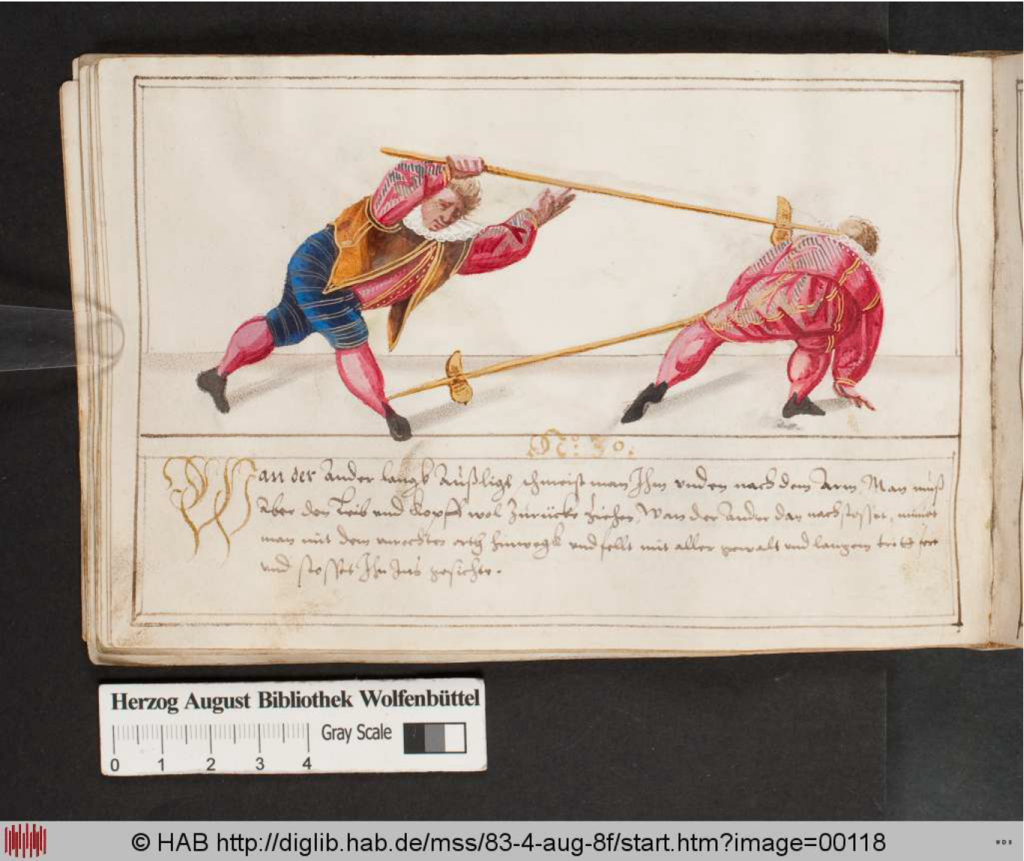 N: 30.
Wan der Ander langk Außligt schmeist man Ihm unden nach dem Arm, Man muß
Aber den Leib und Kopff wol Zurücke ziehen, Wan der Ander dan nachstosset,
man mit dem orth hinwegk und fellt mit aller gewalt und langem tritt
und stosset Ihn ins gesichte.
Herzog August Bibliothek Wolfenbüttel
Gray Scale
0 1 2 3 4
© HAB http://diglib.hab.de/mss/83-4-aug-8f/start.htm?image=00118